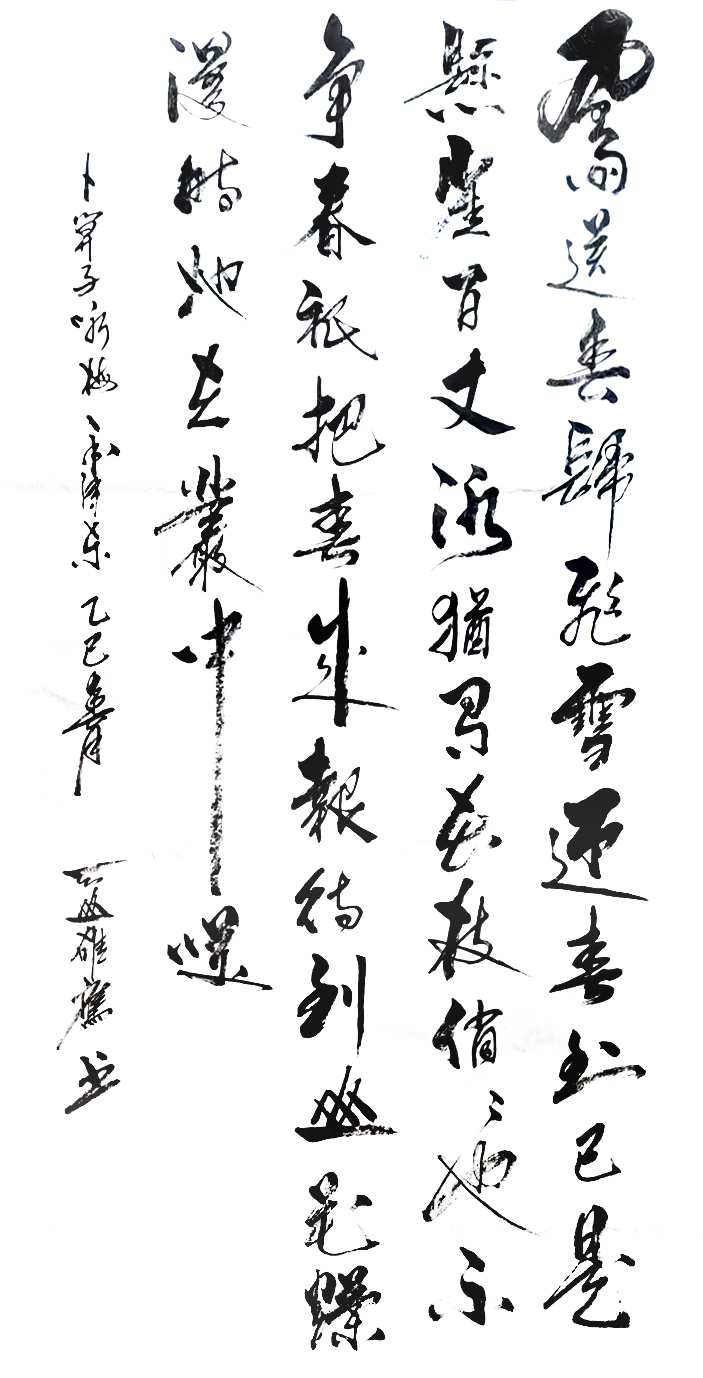 風雨送春歸飛雪迎春到已是
懸崖百丈冰猶有花枝俏〻也不
争春祇把春來報待到山花爛
漫時她在叢中咲
卜算子咏梅毛澤東乙巳春月 书